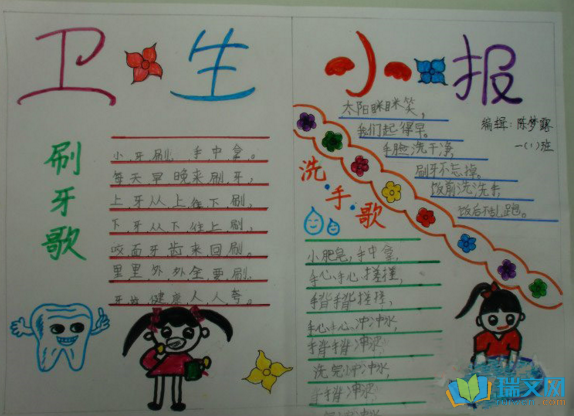 卫生小报
编辑：陈梦露
一（1）班
刷牙歌
小牙刷，手中拿。
每天早晚来刷牙，
上牙从上往下刷，
下牙从下往上刷，
咬面牙齿来回刷。
里里外外全要刷，
牙齿健康人人夸。
太阳眯眯笑，
我们起得早。
手脸洗干净，
刷牙不忘掉。
饭前洗洗手，
饭后不乱跑。
洗手歌
小肥皂，手中拿，
手心手心搓搓，
手背手背搓搓，
手心手心冲冲水，
手背手背冲冲水
洗完
冲冲水
瑞文网